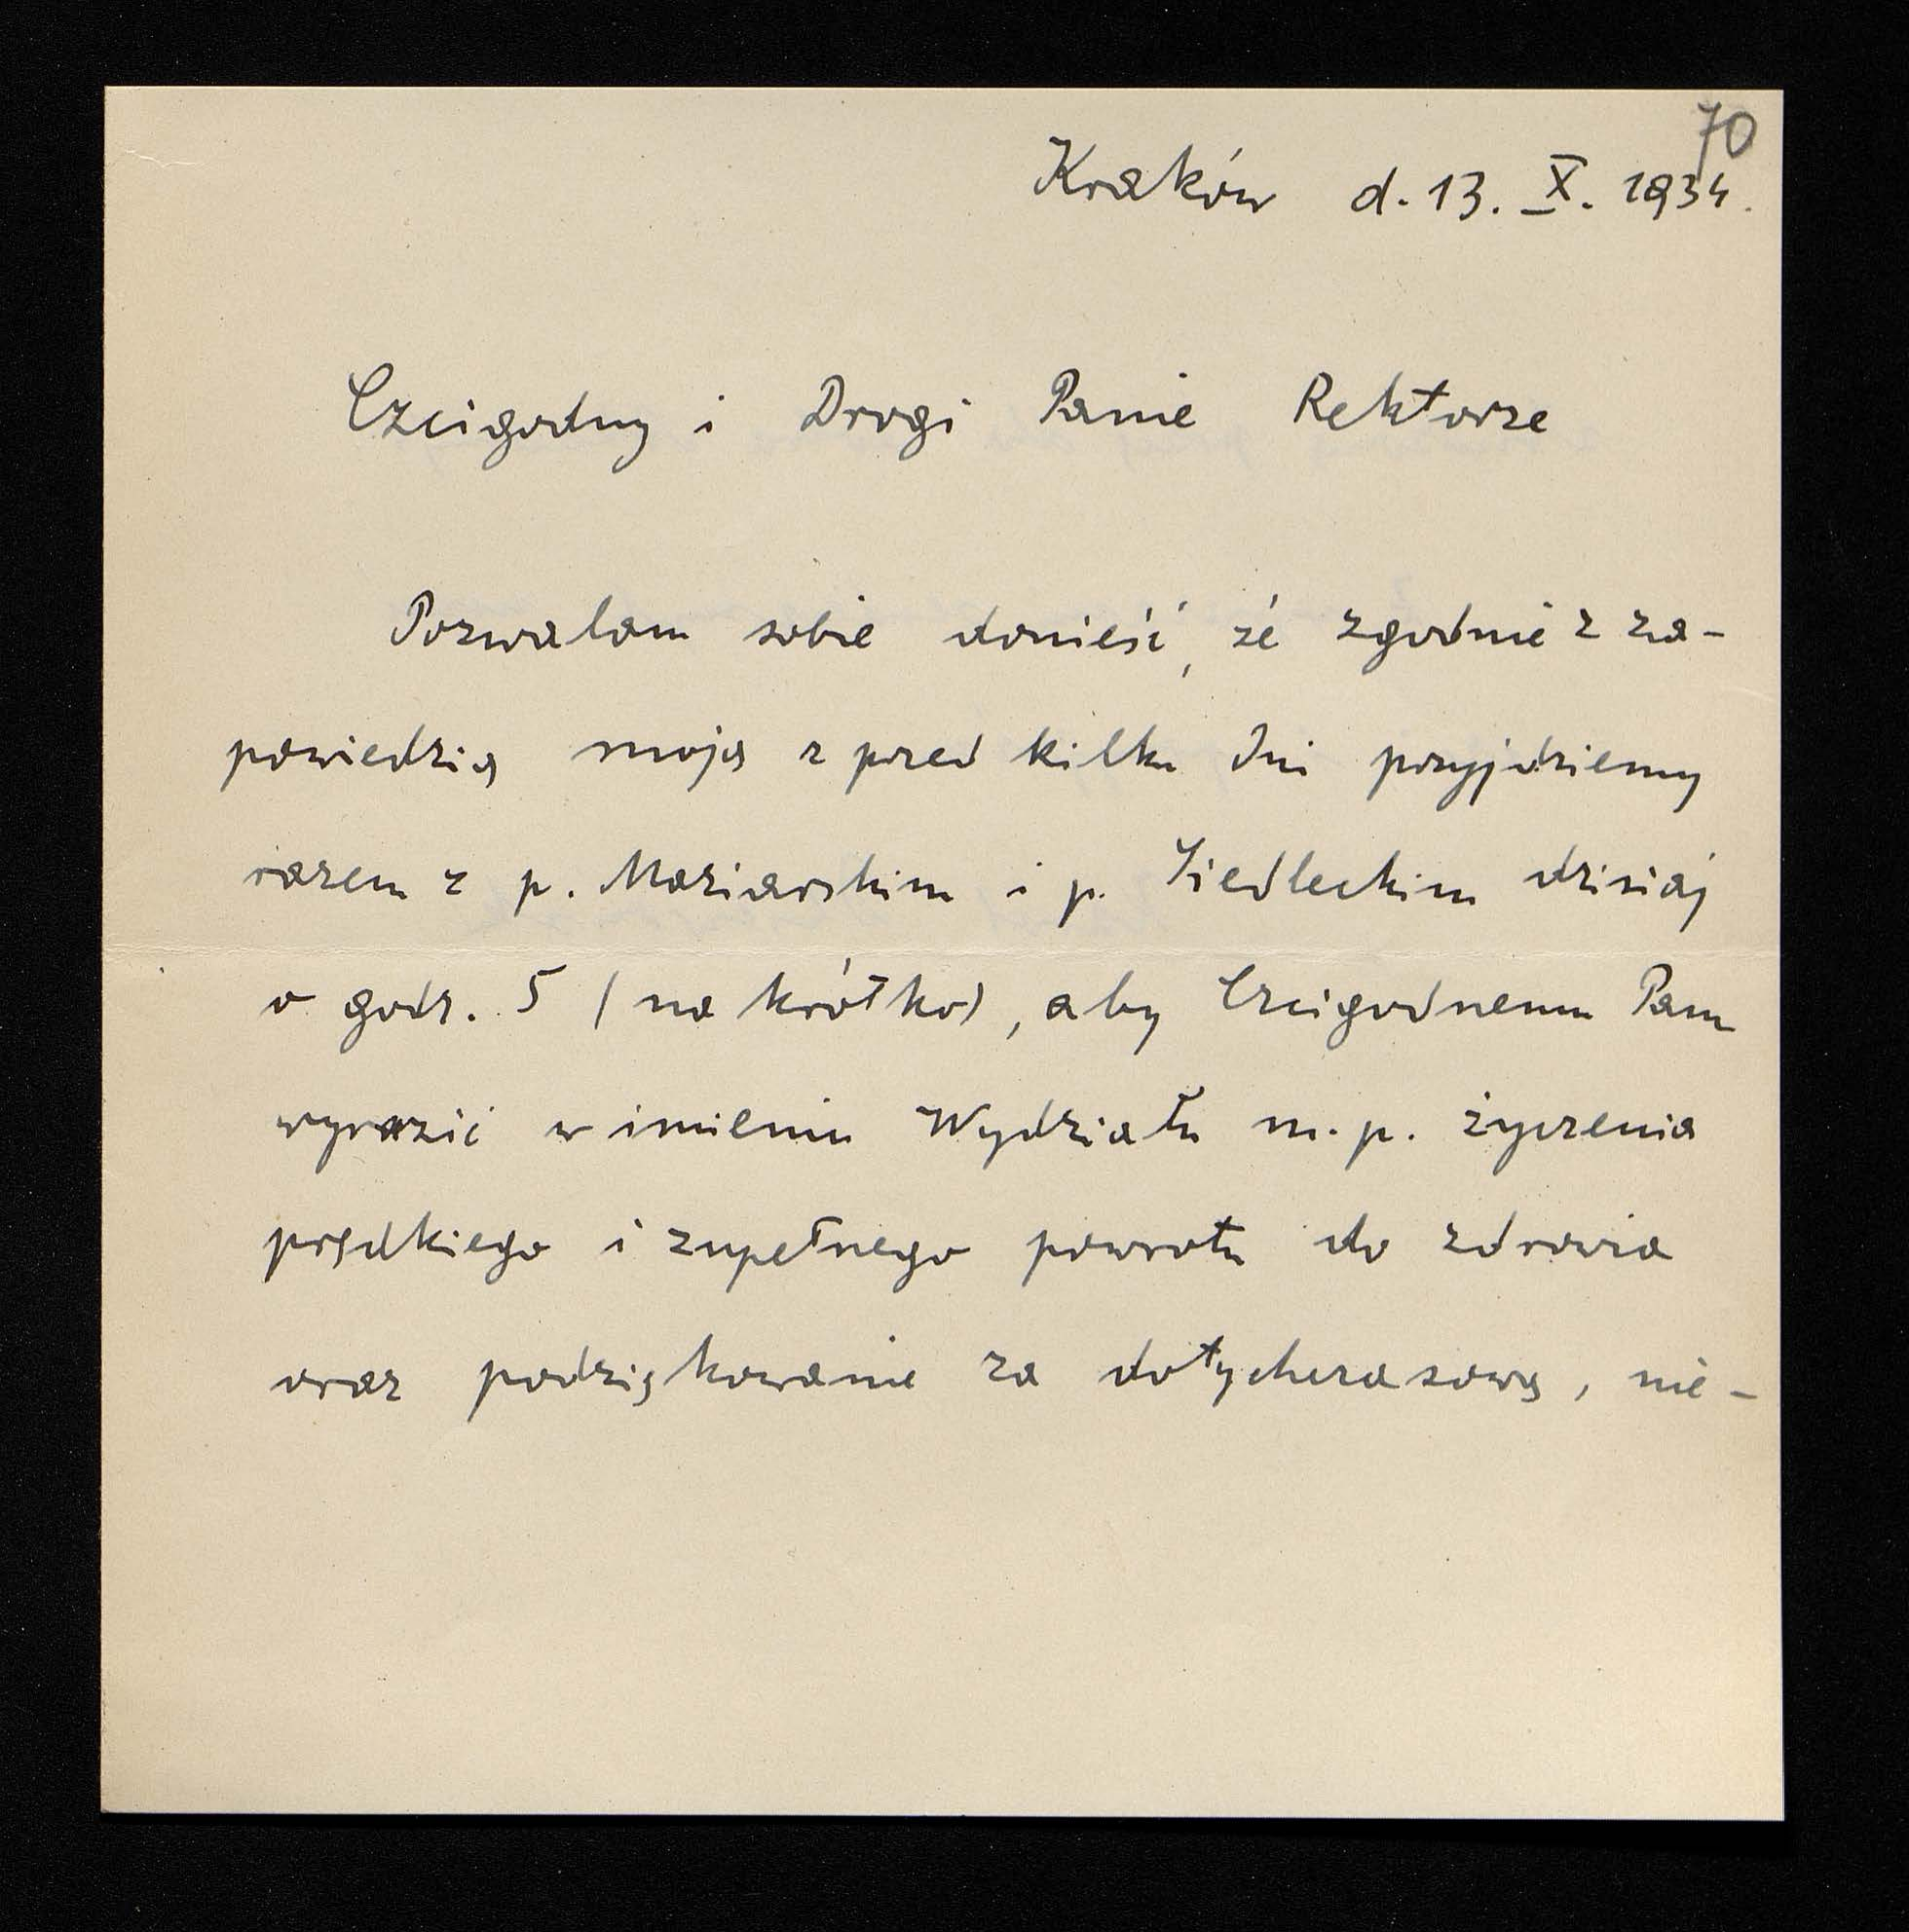 70
Kraków d. 13. X. 1934.
Czcigodny i Drogi Panie Rektorze
Pozwalam sobie donieść, że zgodnie z za-
powiedzią moją z przed kilku dni przyjdziemy
razem z p. Maziarskim i p. Siedleckim dzisiaj
o godz. 5 (na krótko), aby Czcigodnemu Panu
wyrazić w imieniu Wydziału m. p. życzenia
prędkiego i zupełnego powrotu do zdrowia
oraz podziękowanie za dotychczasową, nie-